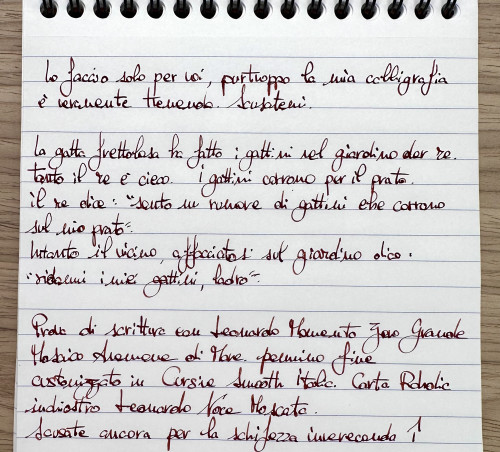 Lo faccio solo per voi, purtroppo la mia calligrafia
è veramente tremenda. Scusatemi.
La gatta frettolosa ha fatto i gattini nel giardino der re.
tanto il re è cieco. i gattini corrono per il prato.
il re dice: "sento un rumore di gattini che corrono
sul mio prato".
Intanto il vicino, affacciatosi sul giardino dice.
"ridammi i miei gattini, ladro".
Prova di scrittura con Leonardo Momento Zero Grande
Mosaico Anemone di Mare. pennino fine
customizzato in Cursive Smooth Italic. Carta Rhodia
inchiostro Leonardo Noce Moscata.
Scusate ancora per la schifezza invereconda !